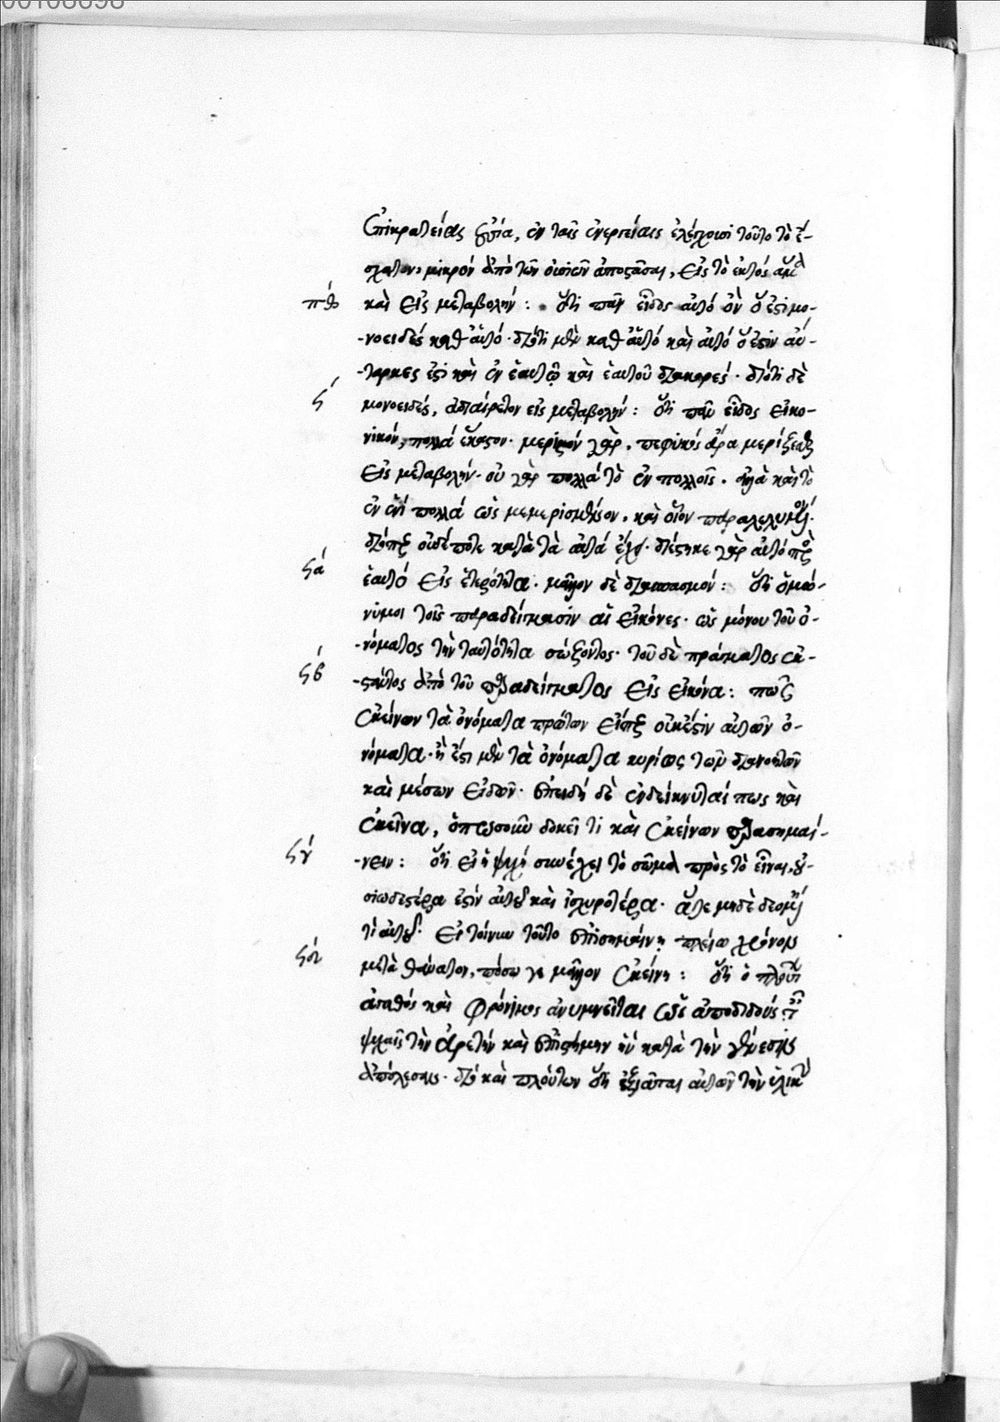 ἐπικρατείας οὐσία, ἐν ταῖς ἐνεργείαις ἐλέγχουσι τοῦτο τὸ ἔ-
σχατον, μικρὸν ἀπὸ τῶν οὐσιῶν ἀποστᾶσαι, εἰς τὸ ἐκτός ἅμα
πθ καὶ εἰς μεταβολήν: ὅτι πᾶν εἶδος αὐτὸ ὃν ὅ ἐστι μο-
-νοειδές καθ' αὑτό· διότι μὲν καθ' αὑτό καὶ αὐτὸ ὅ ἐστιν αὔ-
-ταρκες ἐστὶ καὶ ἐν ἑαυτῷ καὶ ἑαυτοῦ διακορές· διότι δὲ
ϟ μονοειδές, ἀδιαίρετον εἰς μεταβολήν: ὅτι πᾶν εἶδος εἰκο-
νικόν, πολλά ἕκαστον· μεριστὸν γὰρ, πεφυκός ἄρα μερίζεσθαι
εἰς μεταβολήν· οὐ γὰρ πολλὰ τὸ ἐν πολλοῖς, ἀλλὰ καὶ τὸ
ἐν ἑνὶ πολλά ὡς μεμερισμένον, καὶ οἷον παραλελυμένον·
διόπερ οὐδέποτε κατὰ τὰ αὐτά ἔχει· διέστηκε γὰρ αὐτό πρὸς
ϟα ἑαυτό εἰς ἑτερότητα· μᾶλλον δὲ διασπασμόν: ὅτι ὁμώ-
νυμοι τοῖς παραδείγμασιν αἱ εἰκόνες· ὡς μόνου τοῦ ὀ-
-νόματος τὴν ταυτότητα σώζοντος· τοῦ δὲ πράγματος ἐκ-
ϟβ -στάντος ἀπὸ τοῦ παραδείγματος εἰς εἰκόνα: πῶς
ἐκείνων τὰ ὀνόματα πρώτων εἴπερ οὐκ ἔστιν αὐτῶν ὀ-
νόματα· ἢ ἔστι μὲν τὰ ὀνόματα κυρίως τῶν διανοητῶν
καὶ μέσων εἰδῶν· ἐπειδὴ δὲ ἐνδείκνυταί πως καὶ
ἐκεῖνα, ὁπωσοῦν δοκεῖ τι καὶ ἐκείνων παρασημαί-
ϟγ -νειν: ὅτι εἰ ἡ ψυχὴ συνέχει τὸ σῶμα πρὸς τὸ εἶναι, οὐ-
σιωδεστέρα ἐστὶν αὐτοῦ καὶ ἰσχυροτέρα· ἅτε μηδὲ δεομένη
τι αὐτοῦ· εἰ τοίνυν τοῦτο ἐπισημαίνει πλείω χρόνον
ϟδ μετὰ θάνατον, πόσῳ γε μᾶλλον ἐκείνη: ὅτι ὁ πλούτων
ἀγαθός καὶ φρόνιμος ἀνυμνεῖται ὡς ἀποδιδούς ταῖς
ψυχαῖς τὴν ἀρετὴν καὶ ἐπιστήμην ἣν κατὰ τὴν γένεσιν
ἀπόλεσαις· διὸ καὶ πλούτων ὅτι ἐξιᾶται αὐτῶν τὴν ὑλικὴν